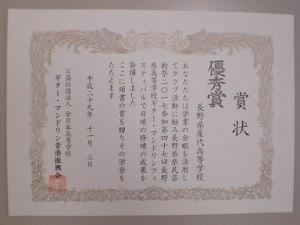 賞状
優秀賞
長野県屋代高等学校
あなたたちは学業の余暇を活用し
てクラブ活動に励み長野県県民芸
術祭二〇一七参加第四十七回長野
県高等学校ギター・マンドリンフェ
スティバルで日頃の修練の成果を
発揮しました
ここに頭書の賞を贈りその栄誉を
たたえます
平成二十九年 十一月 三日
公益社団法人 全日本高等学校
ギター・マンドリン音楽振興会